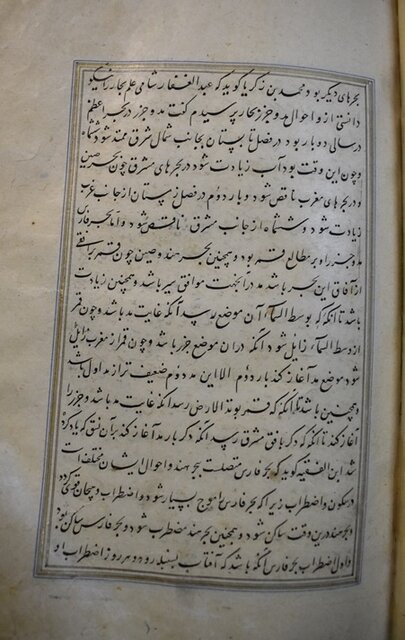 بحرهای دیگر بود و محمد بن زکریا کوید که عبد الغفار شامی علم بحار را نیکو
دانستی از و احوال مد و جزر بحار پرسیدم کفت مد و جزر در بحر اعظم
در سالی دو بار بود در فصل تابستان بجانب شمال شرق ممتد شود ششماه
و چون این وقت بود آب زیادت شود در بحرهای مشرق چون بحر صین
و در بحرهای مغرب ناقص شود و بار دوم در فصل زمستان از جانب غرب
زیادت شود و ششماه از جانب مشرق ناقص شود و اما بحر فارس
مد و جزر او بر مطالع قمر بود و همچنین بحر هند و صین چون قمر برافقی
از آفاق این بحر باشد مد درآید موافق سیر باشد و همچنین زیادت
باشد تا آنکه که بوسط السماء آن موضع رسد آنکه غایت مد باشد و چون قمر
از وسط السماء زایل شود آنکه در آن موضع جزر باشد و چون قمر از مغرب زایل
شود موضع مد آغاز کند بار دوم الا این مد دوم ضعیف تر از مد اول باشد
و همچنین باشد تا آنکه که قمر بوتد الارض رسد آنکه غایت مد باشد و جزر را
آغاز کند تا آنکه که دکر بافق مشرق رسد آنکه دکر بار مد آغاز کند بر آن نسق که یاد کرده
شد ابن الفقیه کوید که بحر فارس متصلست ببحر هند و احوال ایشان مختلف است
در سکون و اضطراب زیرا که بحر فارس را موج بسیار شود و اضطراب و هیجان قوی کردد
و بحر هند درین وقت ساکن شود و همچنین بحر هند مضطرب شود و بحر فارس ساکن بود
و اول اضطراب بحر فارس آنکه باشد که آفتاب بسنبله رود و هر روز اضطراب او